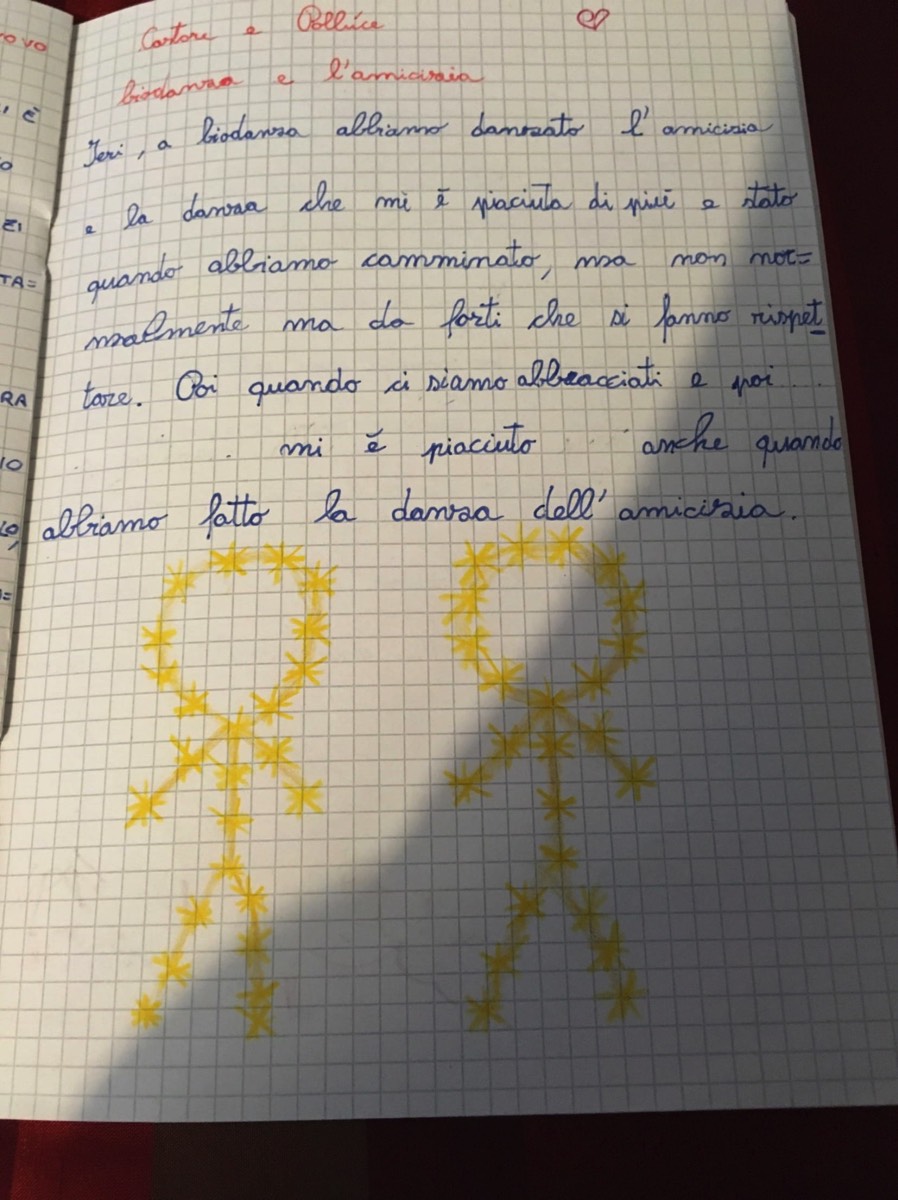 Castore e Polluce
biodanza e l'amicizia
Ieri, a biodanza abbiamo danzato l'amicizia
e la danza che mi è piaciuta di più e stato
quando abbiamo camminato, ma non nor=
malmente ma da forti che si fanno rispet
tare. Poi quando ci siamo abbracciati e poi...
mi è piaciuto anche quando
abbiamo fatto la danza dell'amicizia.
OVO
È
O
EI
TA=
RA
IO